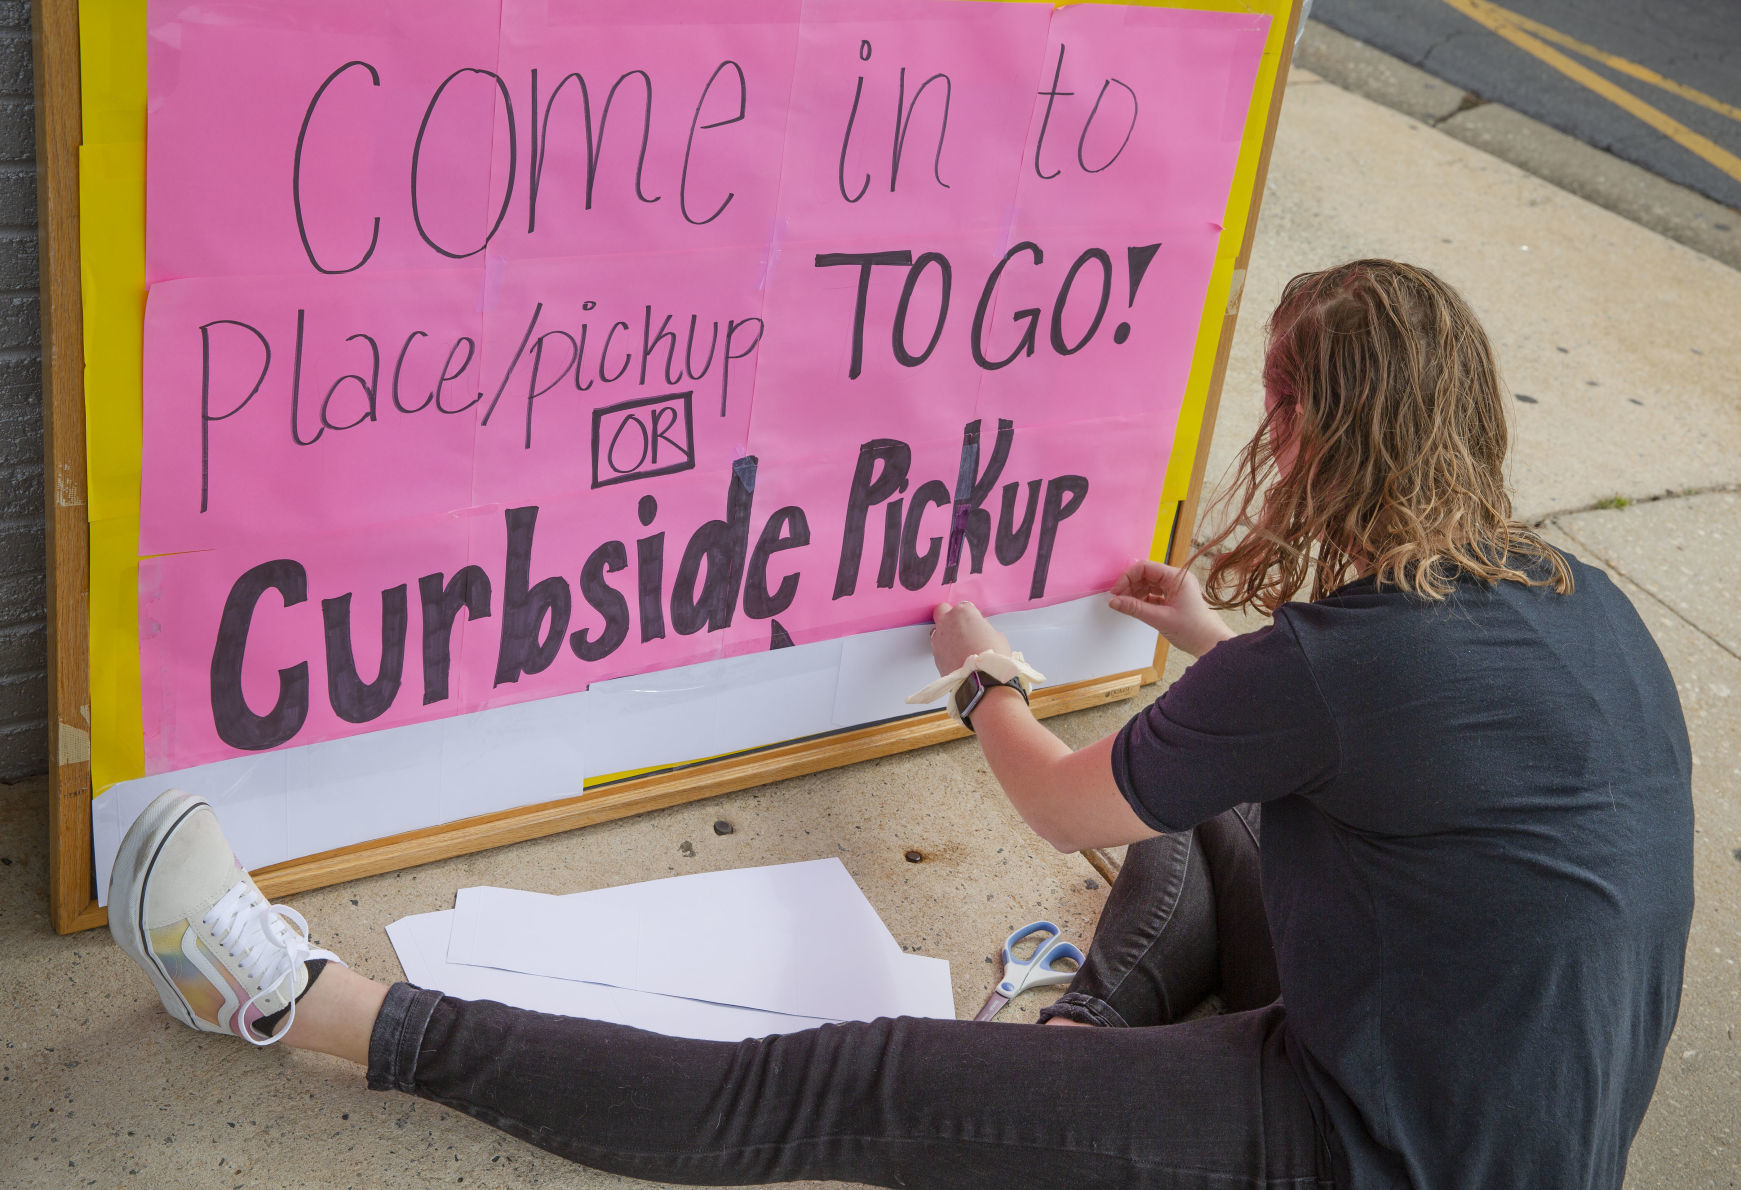 Come in to
Place/pickup TO GO!
OR
Curbside Pickup